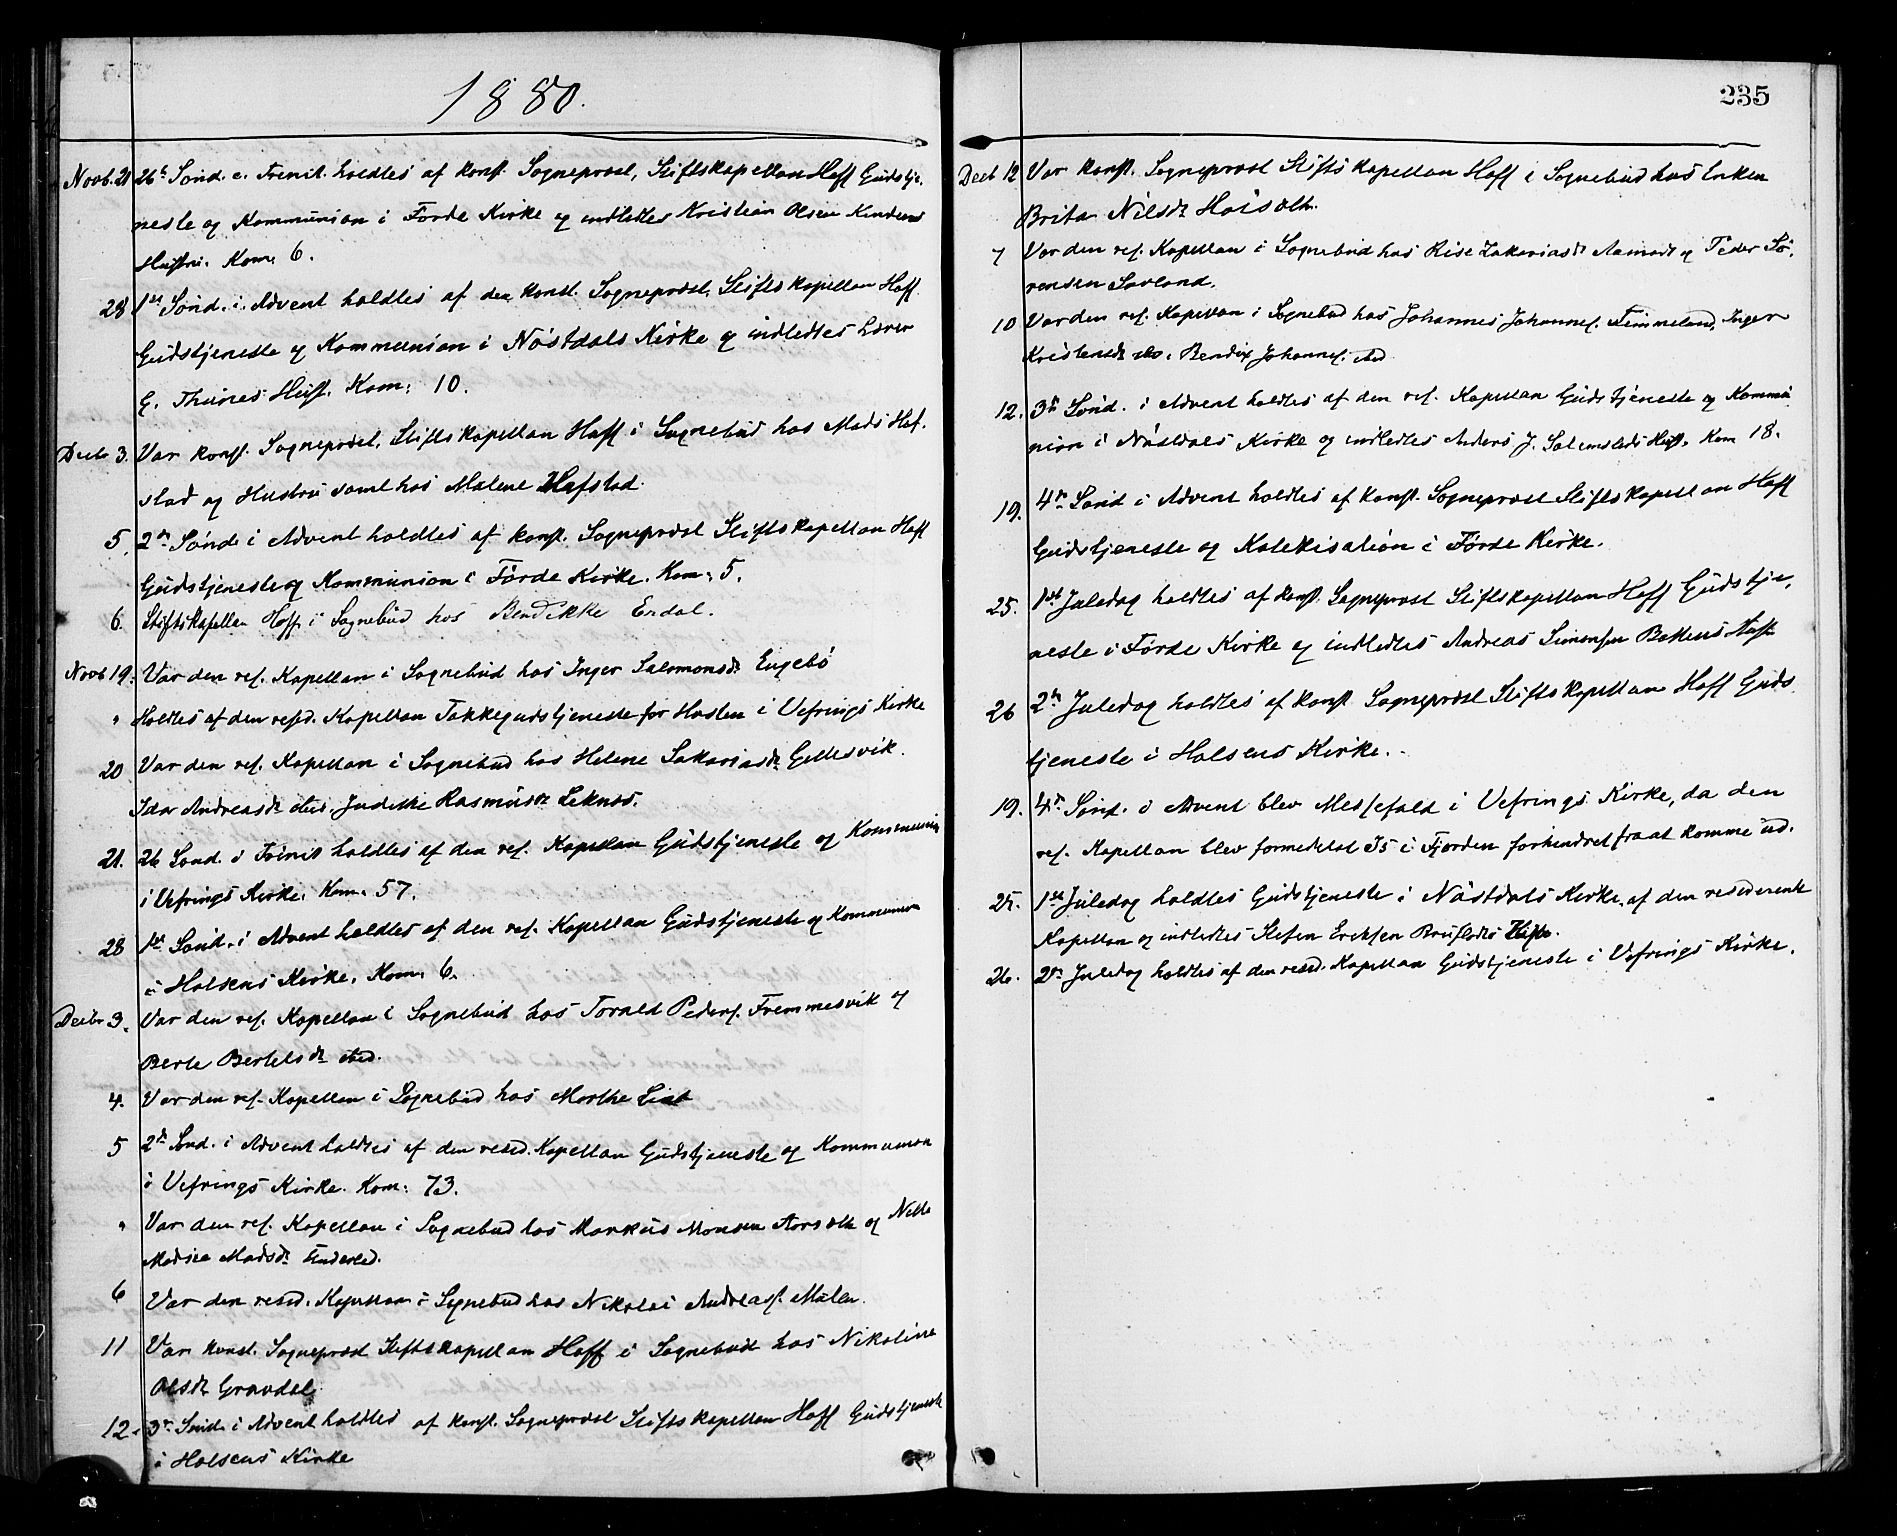 1880.
Novb. 21 26de Sønd. e. Trinit. holdtes af konst. Sognepræst, Stiftskapellan Hoff Gudstje-
neste og Kommunion i Førde Kirke og indledtes Kristian Olsen
Hustru. Kom. 6.
28 1ste Sønd. i Advent holdtes af den konst. Sognepræst, Stiftskapellan Hoff
Gudstjeneste og Kommunion i Nøstdals Kirke og indledtes Lærer
G. Thunes Hust. Kom: 10.
Decbr 3. Var konst. Sognepræst, Stiftskapellan Hoff i Sognebud hos Mads Haf-
stad og Hustru samt hos Malene Hafstad
5. 2den Sønd i Advent holdtes af konst. Sognepræst Stiftskapellan Hoff
Gudstjeneste og Kommunion i Førde Kirke. Kom: 5.
6. Stiftskapellan Hoff i Sognebud hos Bendikke Erdal.
Novb 19. Var den res. Kapellan i Sognebud hos Inger Salomonsdr Engebø
" Holdtes af den resid. Kapellan Takkegudstjeneste for Høsten i Vefrings Kirke
20 Var den res. Kapellan i Sognebud hos Helene Sakariasdr Gellesvik
Ida Andreasdr sted. Judithe Rasmusdr Leknes.
21. 26 Sønd. i Trinit holdtes af den res. Kapellan Gudstjeneste og Kommunion
i Vefrings Kirke. Kom. 57.
28 1ste Sønd. i Advent holdtes af den res. Kapellan Gudstjeneste og Kommunion
i Holsens Kirke. Kom. 6.
Decbr 3. Var den res. Kapellan i Sognebud hos Torald Peders. Fremmesvik og
Berte Bertelsdr sted.
4. Var den res. Kapellan i Sognebud hos Marthe
5 2den Sønd. i Advent holdtes af den resid. Kapellan Gudstjeneste og Kommunion
i Vefrings Kirke. Kom: 73.
" Var den res. Kapellan i Sognebud hos Markus Monsen og
Madsdr
6 Var den resid. Kapellan i Sognebud hos Nikolai Andreas.
11 Var konst. Sognepræst Stiftskapellan Hoff i Sognebud hos Nikoline
Olsdr Gravdal.
12. 3die Sønd. i Advent holdtes af konst. Sognepræst Stiftskapellan Hoff Gudstjeneste
i Holsens Kirke
235
Decb 12 Var konst. Sognepræst Stiftskapellan Hoff i Sognebud hos Enken
Brita Nilsdr
7 Var den res. Kapellan i Sognebud hos Zakariasdr og Peder Sø-
rensen
10 Var den res. Kapellan i Sognebud hos Johannes Johannes. Fimmeland, Inger
Kristensdr sts. Bendix Johannes. sted
12. 3die Sønd. i Advent holdtes af den res. Kapellan Gudstjeneste og Kommu-
nion i Nøstdals Kirke og indledtes Anders J. Hust. Kom 18.
19. 4de Sønd i Advent holdtes af konst. Sognepræst Stiftskapellan Hoff
Gudstjeneste og Katekisation i Førde Kirke.
25. 1ste Juledag holdtes af konst. Sognepræst Stiftskapellan Hoff Gudstje-
neste i Førde Kirke og indledtes Andreas Simonsen Hust
26 2den Juledag holdtes af konst. Sognepræst Stiftskapellan Hoff Guds-
tjeneste i Holsens Kirke.
19. 4de Sønd. i Advent blev Messefald i Vefrings Kirke, da den
res. Kapellan blev formedelst Is i Fjorden forhindret fra at komme ud.
25. 1ste Juledag holdtes Gudstjeneste i Nøstdals Kirke af den residerende
Kapellan og indledtes Stefen Eriksen Hust.
26. 2den Juledag holdtes af den resid. Kapellan Gudstjeneste i Vefrings Kirke.